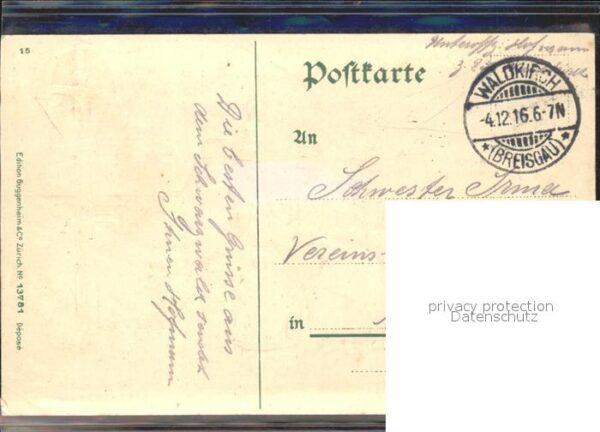 15
Postkarte
Unteroffz. Hofmann
WALDKIRCH
-4.12.16.6-7N
*(BREISGAU)*
An
Schwester Irma
Vereins-
in
Die besten Grüsse aus
dem Schwarzwald sendet
Ihnen Hofmann
Edition Guggenheim & Co Zürich. No 13781 Déposé
privacy protection
Datenschutz